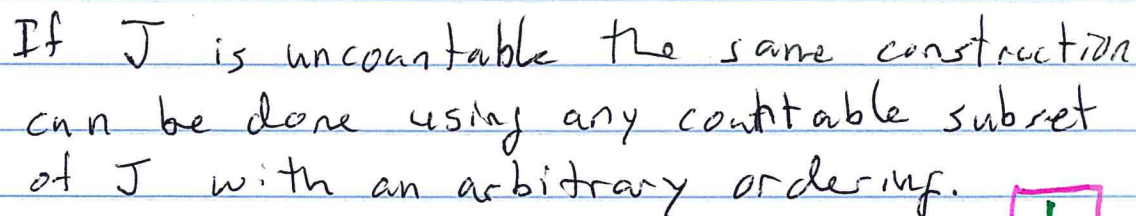 If J is uncountable the same construction
can be done using any countable subset
of J with an arbitrary ordering.